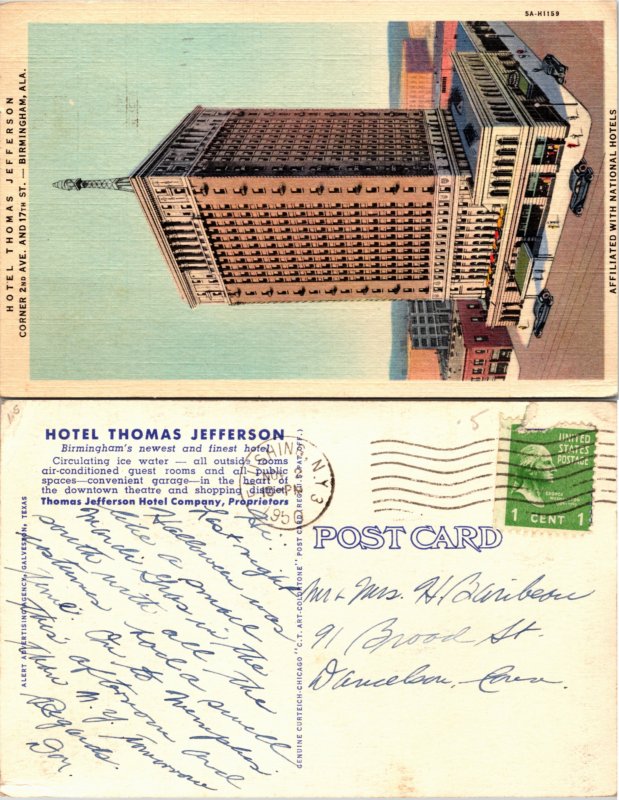 5A-H1159
HOTEL THOMAS JEFFERSON
CORNER 2ND AVE. AND 17TH ST. — BIRMINGHAM, ALA.
AFFILIATED WITH NATIONAL HOTELS
HOTEL THOMAS JEFFERSON
Birmingham's newest and finest hotel
Circulating ice water — all outside rooms
air-conditioned guest rooms and all public
spaces—convenient garage—in the heart of
the downtown theatre and shopping district
Thomas Jefferson Hotel Company, Proprietors
ALERT ADVERTISING AGENCY, GALVESTON, TEXAS
GENUINE CURTEICH-CHICAGO "C.T. ART-COLORTONE" POST CARD (REG. U.S. PAT. OFF.)
N.Y. 3
PM
195
UNITED
STATES
POSTAGE
GEORGE
WASHINGTON
1 CENT 1
POST CARD
Last night
Halloween was
quite a
in the
south with all the
costumes. Had a swell
time. On to Memphis
this afternoon and
then N.Y. tomorrow
Regards.
Don.
Mr & Mrs. H.
91 Broad St.
Danielson, Conn.